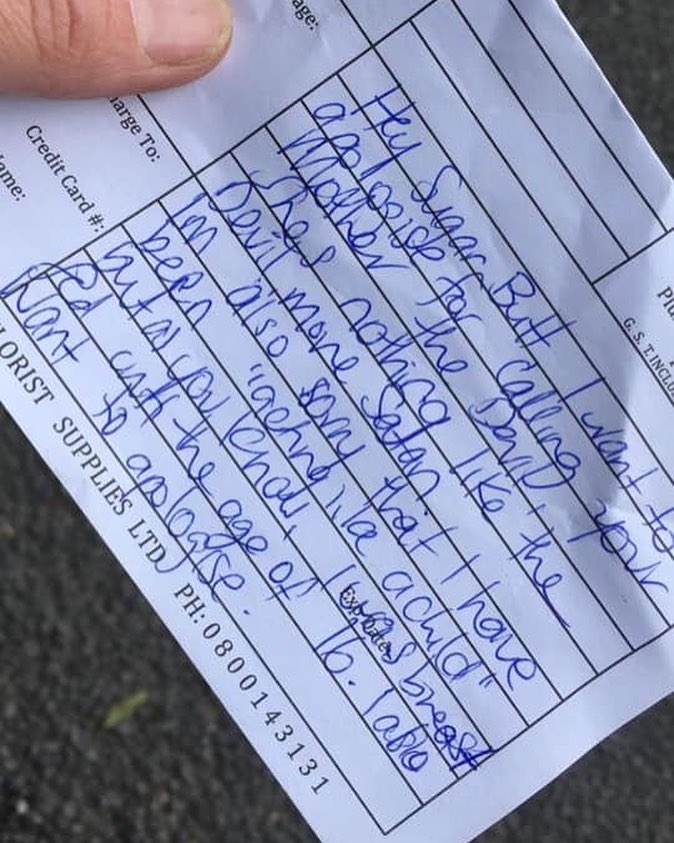 age:
harge To:
Credit Card #:
ame:
G. S. T. INCLU
Hey Sugar Butt I want to
apologise for calling your
Mother the Devil
She's nothing like the
Devil more Satan
I'm also sorry that I have
been "acting like a child"
but as you know, I was breast
fed until the age of 16. I also
want to apologise.
Exp Date:
LORIST SUPPLIES LTD PH: 0800143131